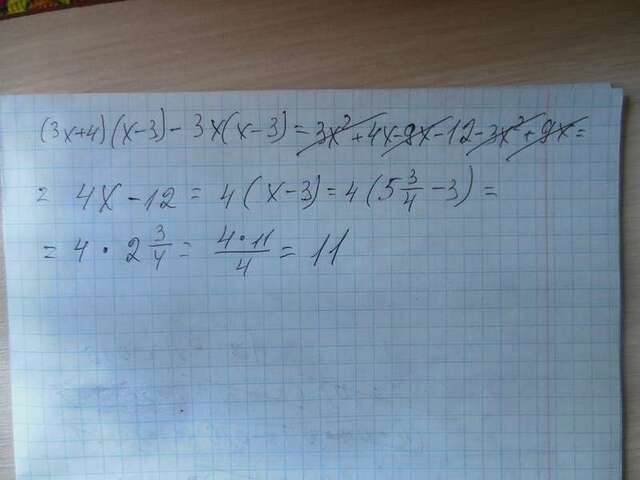 (3x+4)(x-3)-3x(x-3)=3x²+4x-9x-12-3x²+9x=
= 4x-12=4(x-3)=4(5 3/4 -3)=
=4·2 3/4 = 4·11/4 = 11